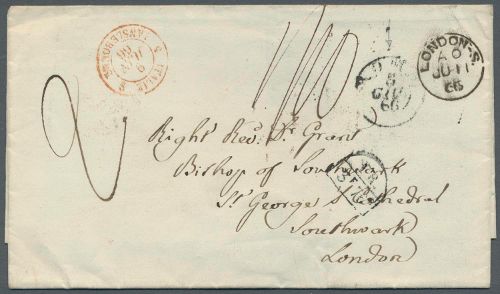 LONDON-S
A 8
JU 11
66
8
GIU
66
Right Rev. Dr Grant
Bishop of Southwark
St Georges Cathedral
Southwark
London